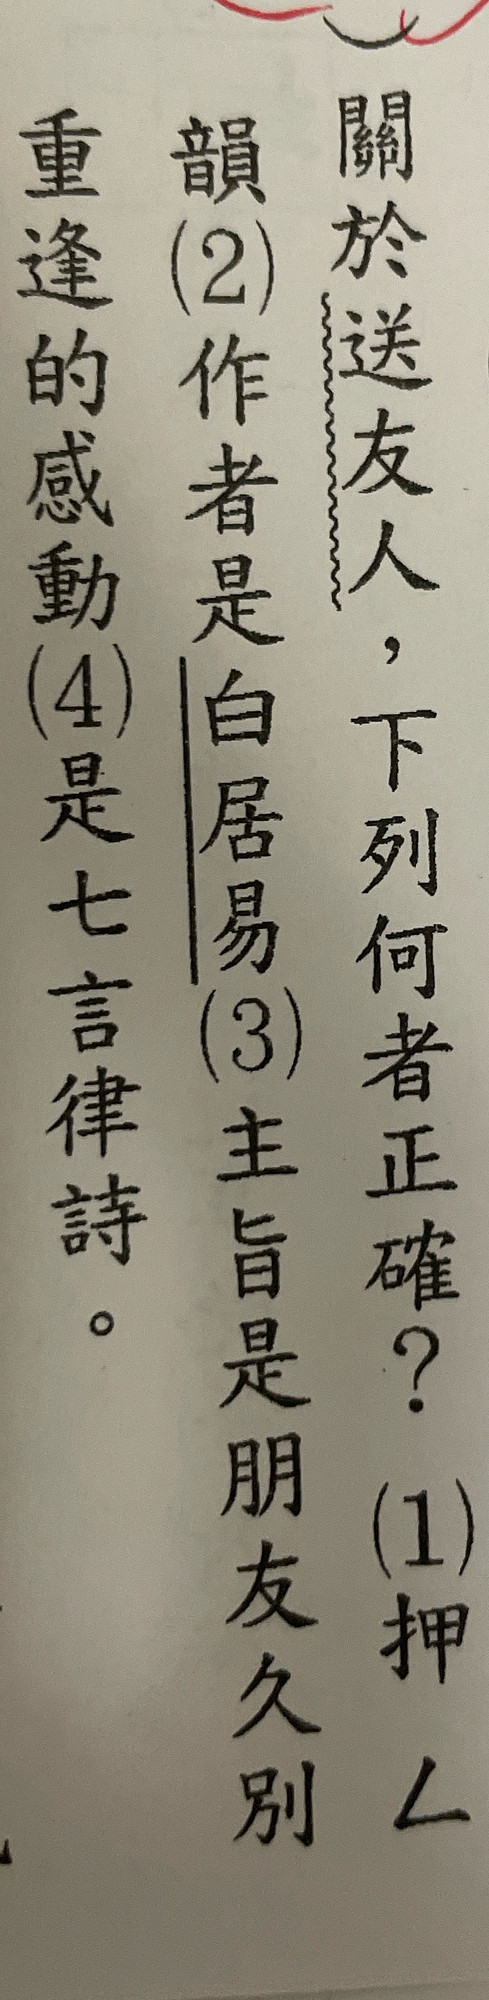 關於送友人，下列何者正確？(1)押ㄥ
韻(2)作者是白居易(3)主旨是朋友久別
重逢的感動(4)是七言律詩。